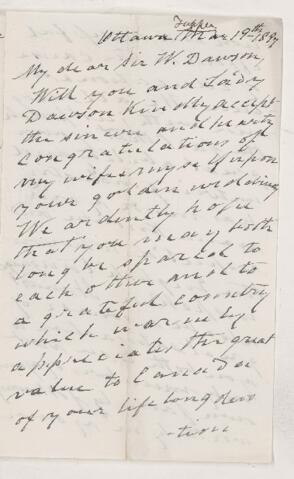 Tupper
Ottawa Mar 19th 1897
My dear Sir W. Dawson,
Will you and Lady
Dawson kindly accept
the sincere and hearty
congratulations of
my wife & myself upon
your golden wedding
We ardently hope
that you may both
long be spared to
each other and to
a grateful country
which warmly
appreciates the great
value to Canada
of your life long devo
-tion